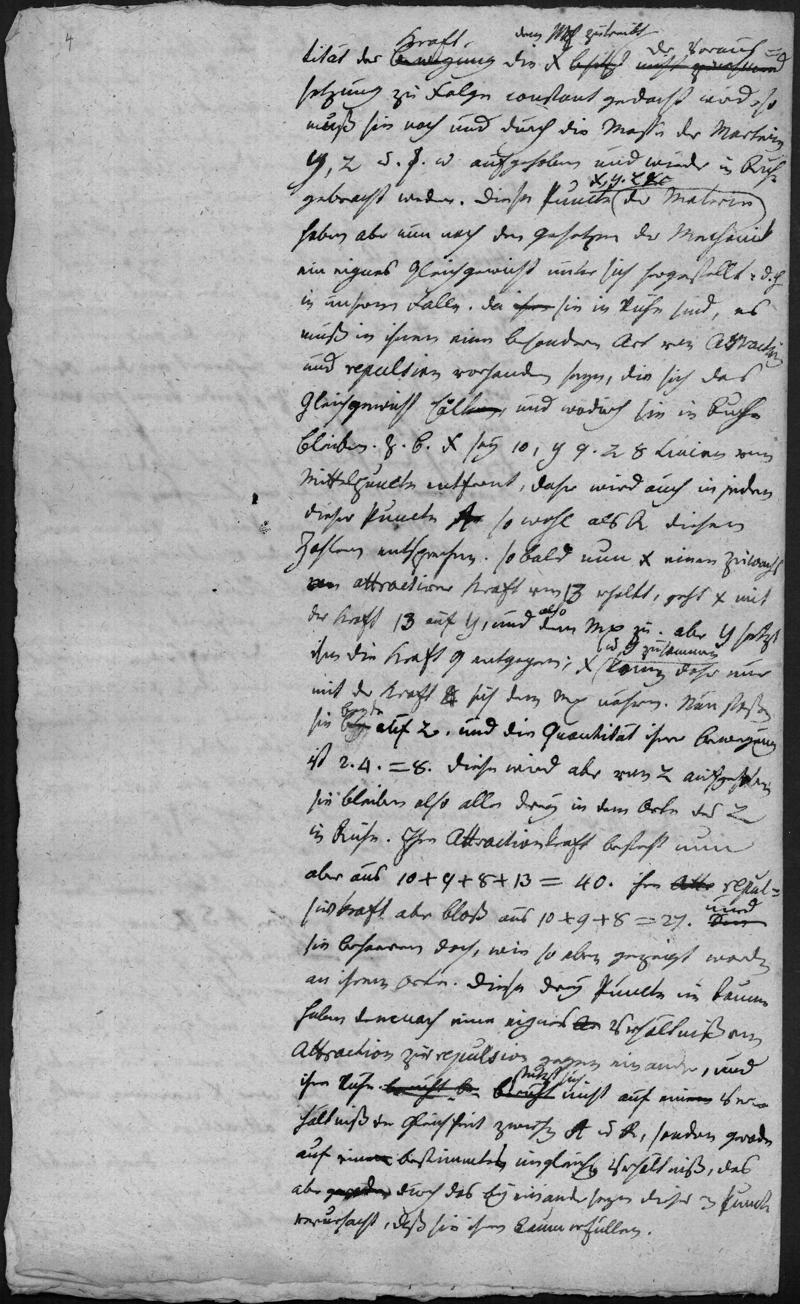 4
Kraft, dem Mp zutreibt
tität der Bewegung die X besitzt der Voraus=
setzung zu Folge constant gedacht wird so
muß sie noch und durch die Masse der Materien
y, z u. s. w aufgehoben und wieder in Ruhe
x, y. z &c
gebracht werden. Diese Puncte (der Materie)
haben aber nun nach den Gesetzen der Mechanick
ein eignes Gleichgewicht unter sich hergestellt. d. h
in unserm Falle. da sie in Ruhe sind, es
muß in ihnen eine besondere Art von Attraction
und repulsion vorhanden seyn, die sich das
Gleichgewicht halten, und wodurch sie in Ruhe
bleiben. z. B. X sey 10, y 9. z 8 Linien vom
Mittelpuncte entfernt, daher wird auch in jedem
dieser Puncte A so wohl als R diesen
Zahlen entsprechen. so bald nun X einen Zuwachs
von attractiver Kraft von 13 erhält, geht x mit
also
der Kraft 13 auf y, und dem Mp zu. aber y setzt
u. y zusammen
ihm die Kraft 9 entgegen; X kann daher nur
mit der Kraft 4 sich dem Mp nähern. Nun stoßen
beyde
sie auf z. und die Quantität ihrer Bewegung
ist 2. 4. = 8. diese wird aber von z aufgehoben
sie bleiben also alle drey in dem Orte des z
in Ruhe. Ihre Attractionskraft besteht nun
aber aus 10 + 9 + 8 + 13 = 40. ihre Attr repul=
sivkraft aber bloß aus 10 + 9 + 8 = 27. und
sie beharren doch, wie so eben gezeigt worden
an ihrem Orte. Diese drey Puncte im Raume
haben demnach ein eignes Verhältniß von
Attraction zur repulsion gegen einander, und
stützt sich
ihre Ruhe beruht nicht auf einem Ver=
hältniß der Gleichheit zwischen A u R, sondern gerade
auf einem bestimmten ungleichen Verhältniß, das
aber durch das bey einander seyn dieser 3 Puncte
verursacht, daß sie ihren Raum erfüllen.